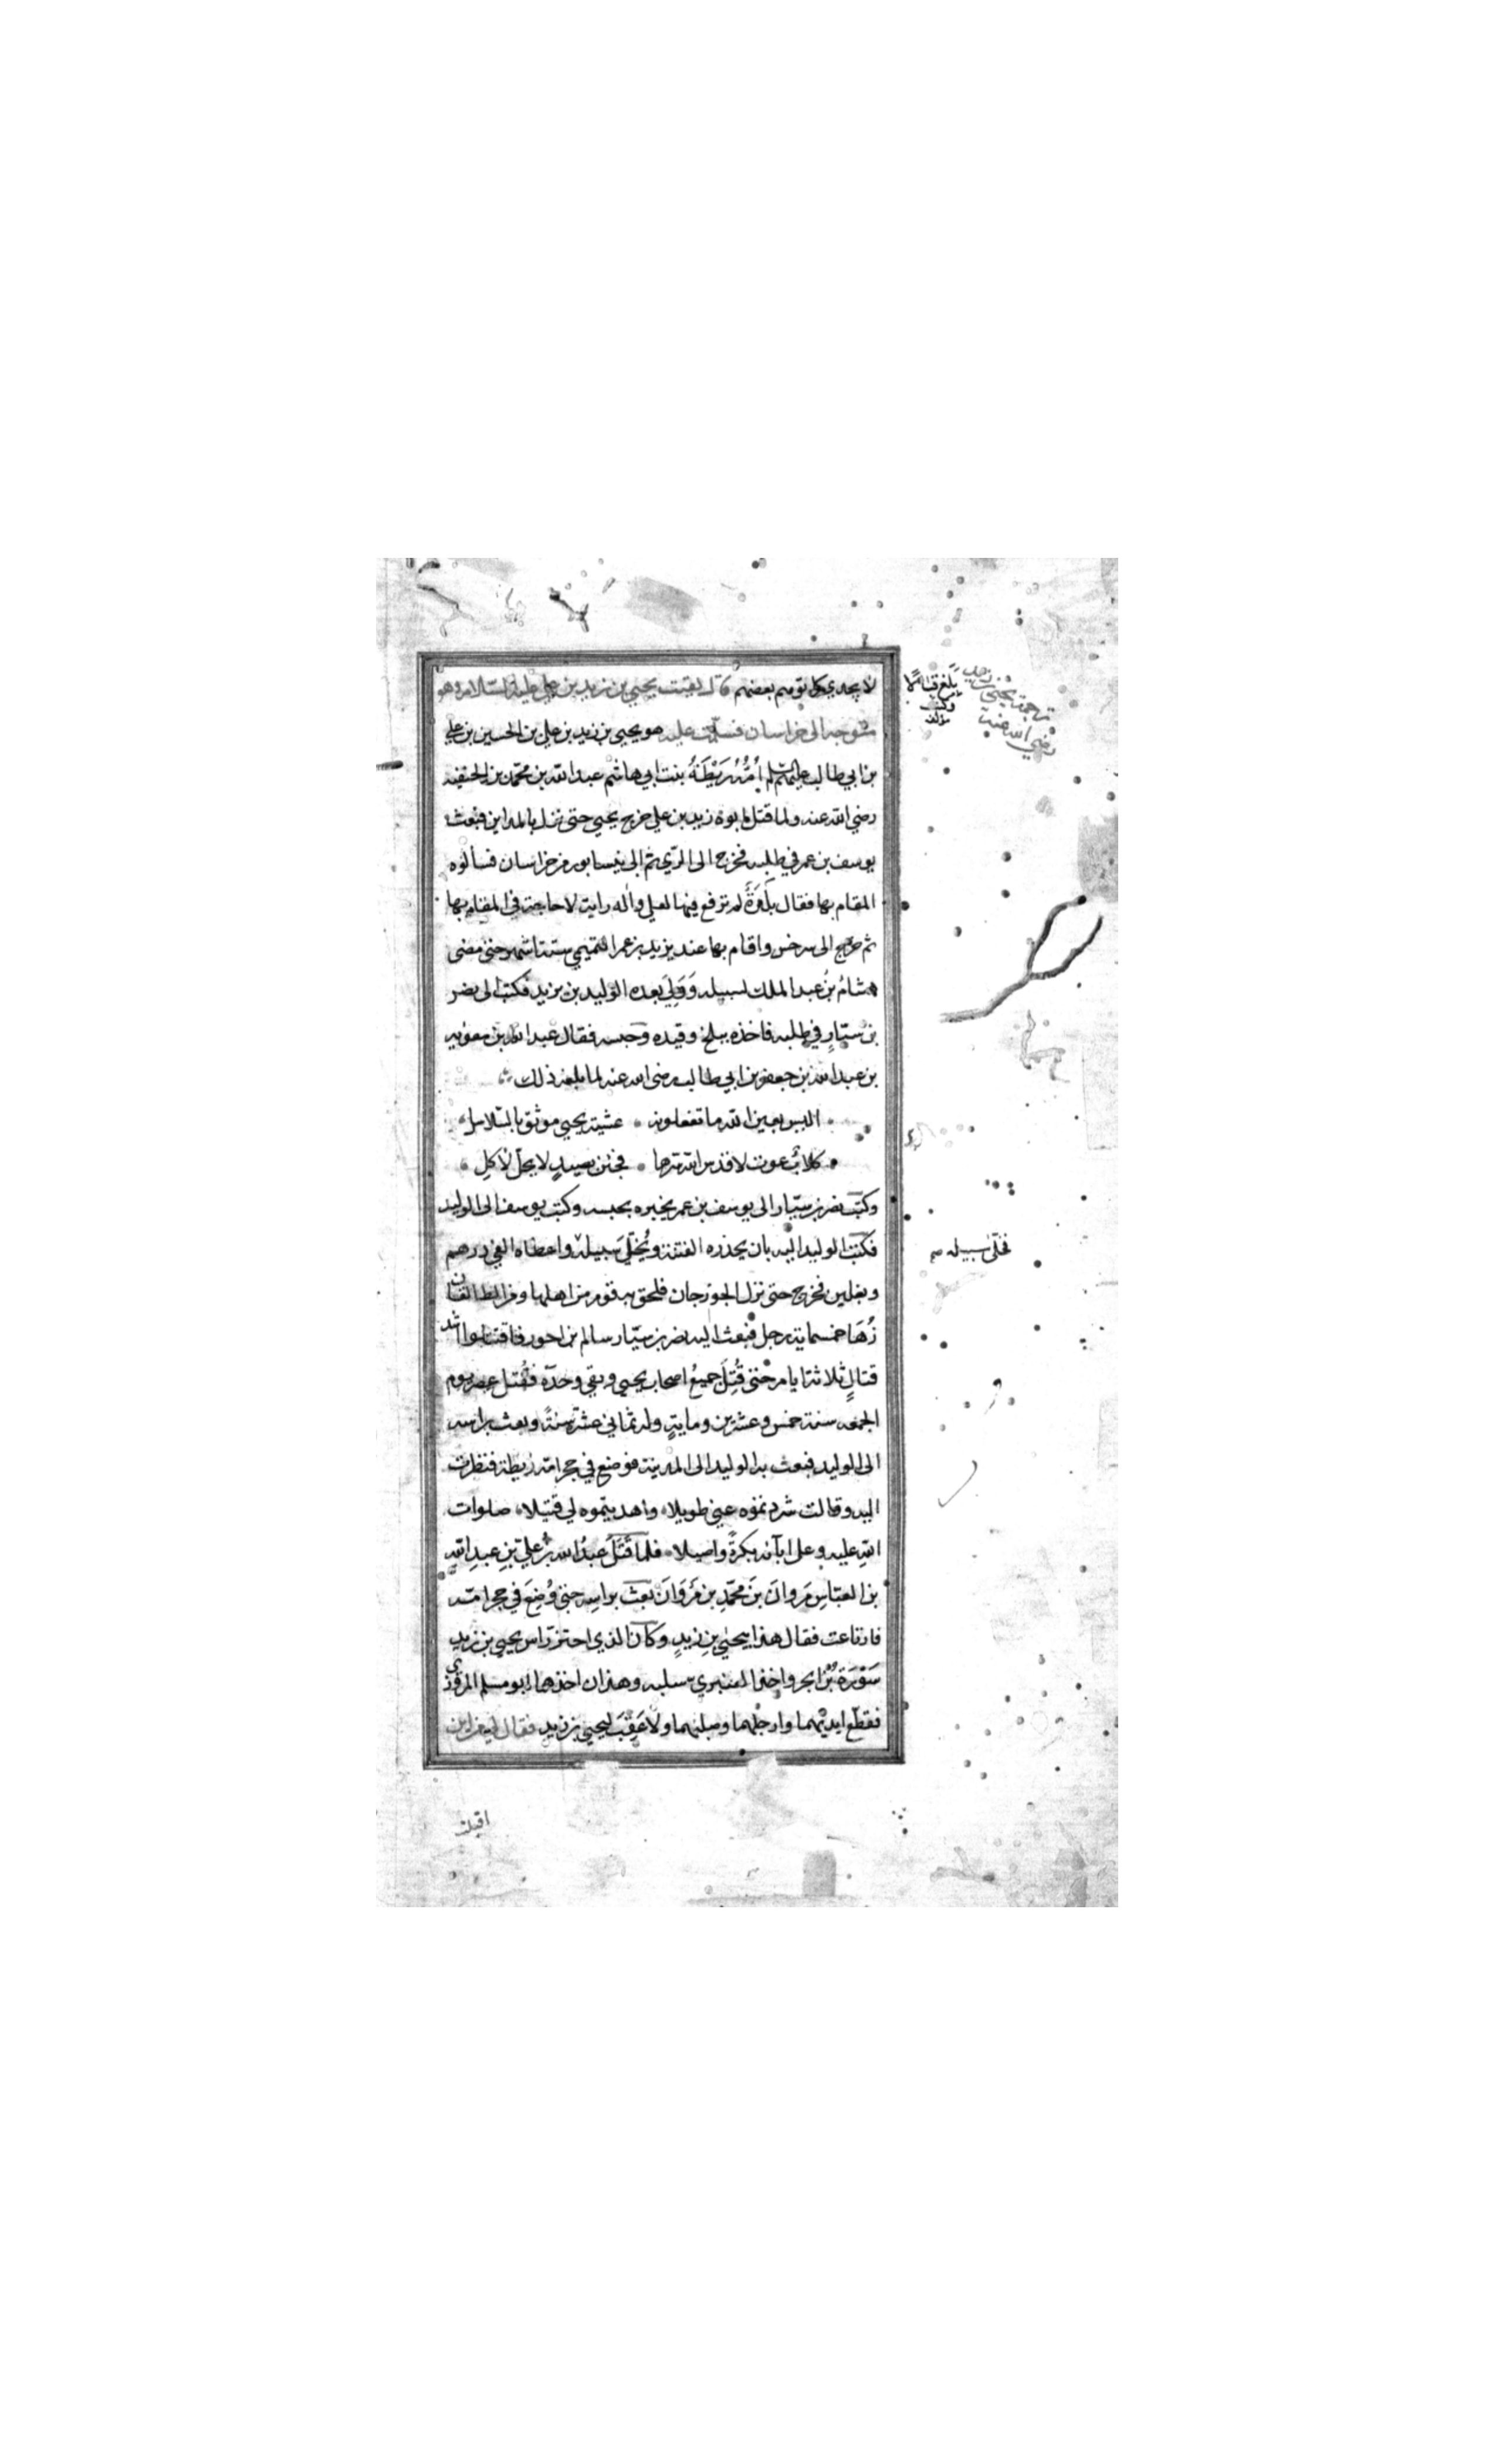 لا يجدي كل توسم بعضهم قال لقيت يحيى بن زيد بن علي عليه السلام وهو
متوجه الى خراسان فسلمت عليه هو يحيى بن زيد بن علي بن الحسين بن علي
بن ابي طالب عليهم السلم أمُّهُ رَيْطَةُ بنت ابي هاشم عبد الله بن محمّد بن الحنفيه
رضي الله عنه ولما قتل ابوه زيد بن علي خرج يحيى حتى نزل بالمداين فبعث
يوسف بن عمر في طلبه فخرج الى الري ثم الى نيسابور من خراسان فسألوه
المقام بها فقال بلدة لم ترفع فيها لعلي واله راية لا حاجة في المقام بها
ثم خرج الى سرخس واقام بها عند يزيد بن عمر التميمي ستة اشهر حتى مضى
هشامُ بنُ عبد الملك لسبيله وَوَلِيَ بعده الوليد بن يزيد فكتب الى نصر
بن سيّارٍ في طلبه فاخذه ببلخ وقيده وحبسه فقال عبد الله بن معويه
بن عبد الله بن جعفر بن ابي طالب رضى الله عنه لما بلغه ذلك
اليس بعين الله ما تفعلونه عشية يحيى موثق بالسّلاسل
كلابٌ عوت لا قدس الله سرها فجئن بصيدٍ لا يحلّ لاكلِ
وكتب نصر بن سيّار الى يوسف بن عمر يخبره بحبسه وكتب يوسف الى الوليد
فكتب الوليد اليه بان يحذره الفتنة ويُخلّيَ سبيله واعطاه الفي درهم
فخلّى سبيله
وبغلين فخرج حتى نزل الجوزجان فلحق به قوم من اهلها ومن الطالقان
زُهَا خمسماية رجل فبعث اليه نصر بن سيّار سالم بن احور فاقتتلوا اشد
قتالٍ ثلاثة ايام حتى قُتِلَ جميعُ اصحاب يحيى وبقي وحدَه فقُتل عصر يوم
الجمعه سنة خمس وعشرين ومايةٍ وله ثماني عشرة سنةً وبعث براسه
الى الوليد فبعث به الوليد الى المدينة فوضع في حجر امه ريطة فنظرت
اليه وقالت شردتموه عني طويلا واهديتموه لي قتيلا صلوات
اللهِ عليه وعلى ابآئه بكرةً واصيلا فلما قَتَلَ عبدُ الله بنُ عليّ بنِ عبدِ اللهِ
بن العبّاسِ مَروانَ بنَ محمّدِ بن مَروَانَ بعث براسِه حتى وُضِعَ في حجر امّه
فارتاعت فقال هذا بيحيى بنِ زيدٍ وكان الذي احتز راس يحيى بن زيدٍ
سَوْرَةُ بْنُ ابجر واخذ العنبري سلبه وهذان اخذهما ابو مسلم المروزي
فقطّع ايديهما وارجلهما وصلبهما ولا عَقِبَ ليحيى بن زيدٍ فقال لي من اين
اقبلت
بلغ قبالا
ترجمة يحيى بن زيد
رضي الله عنه